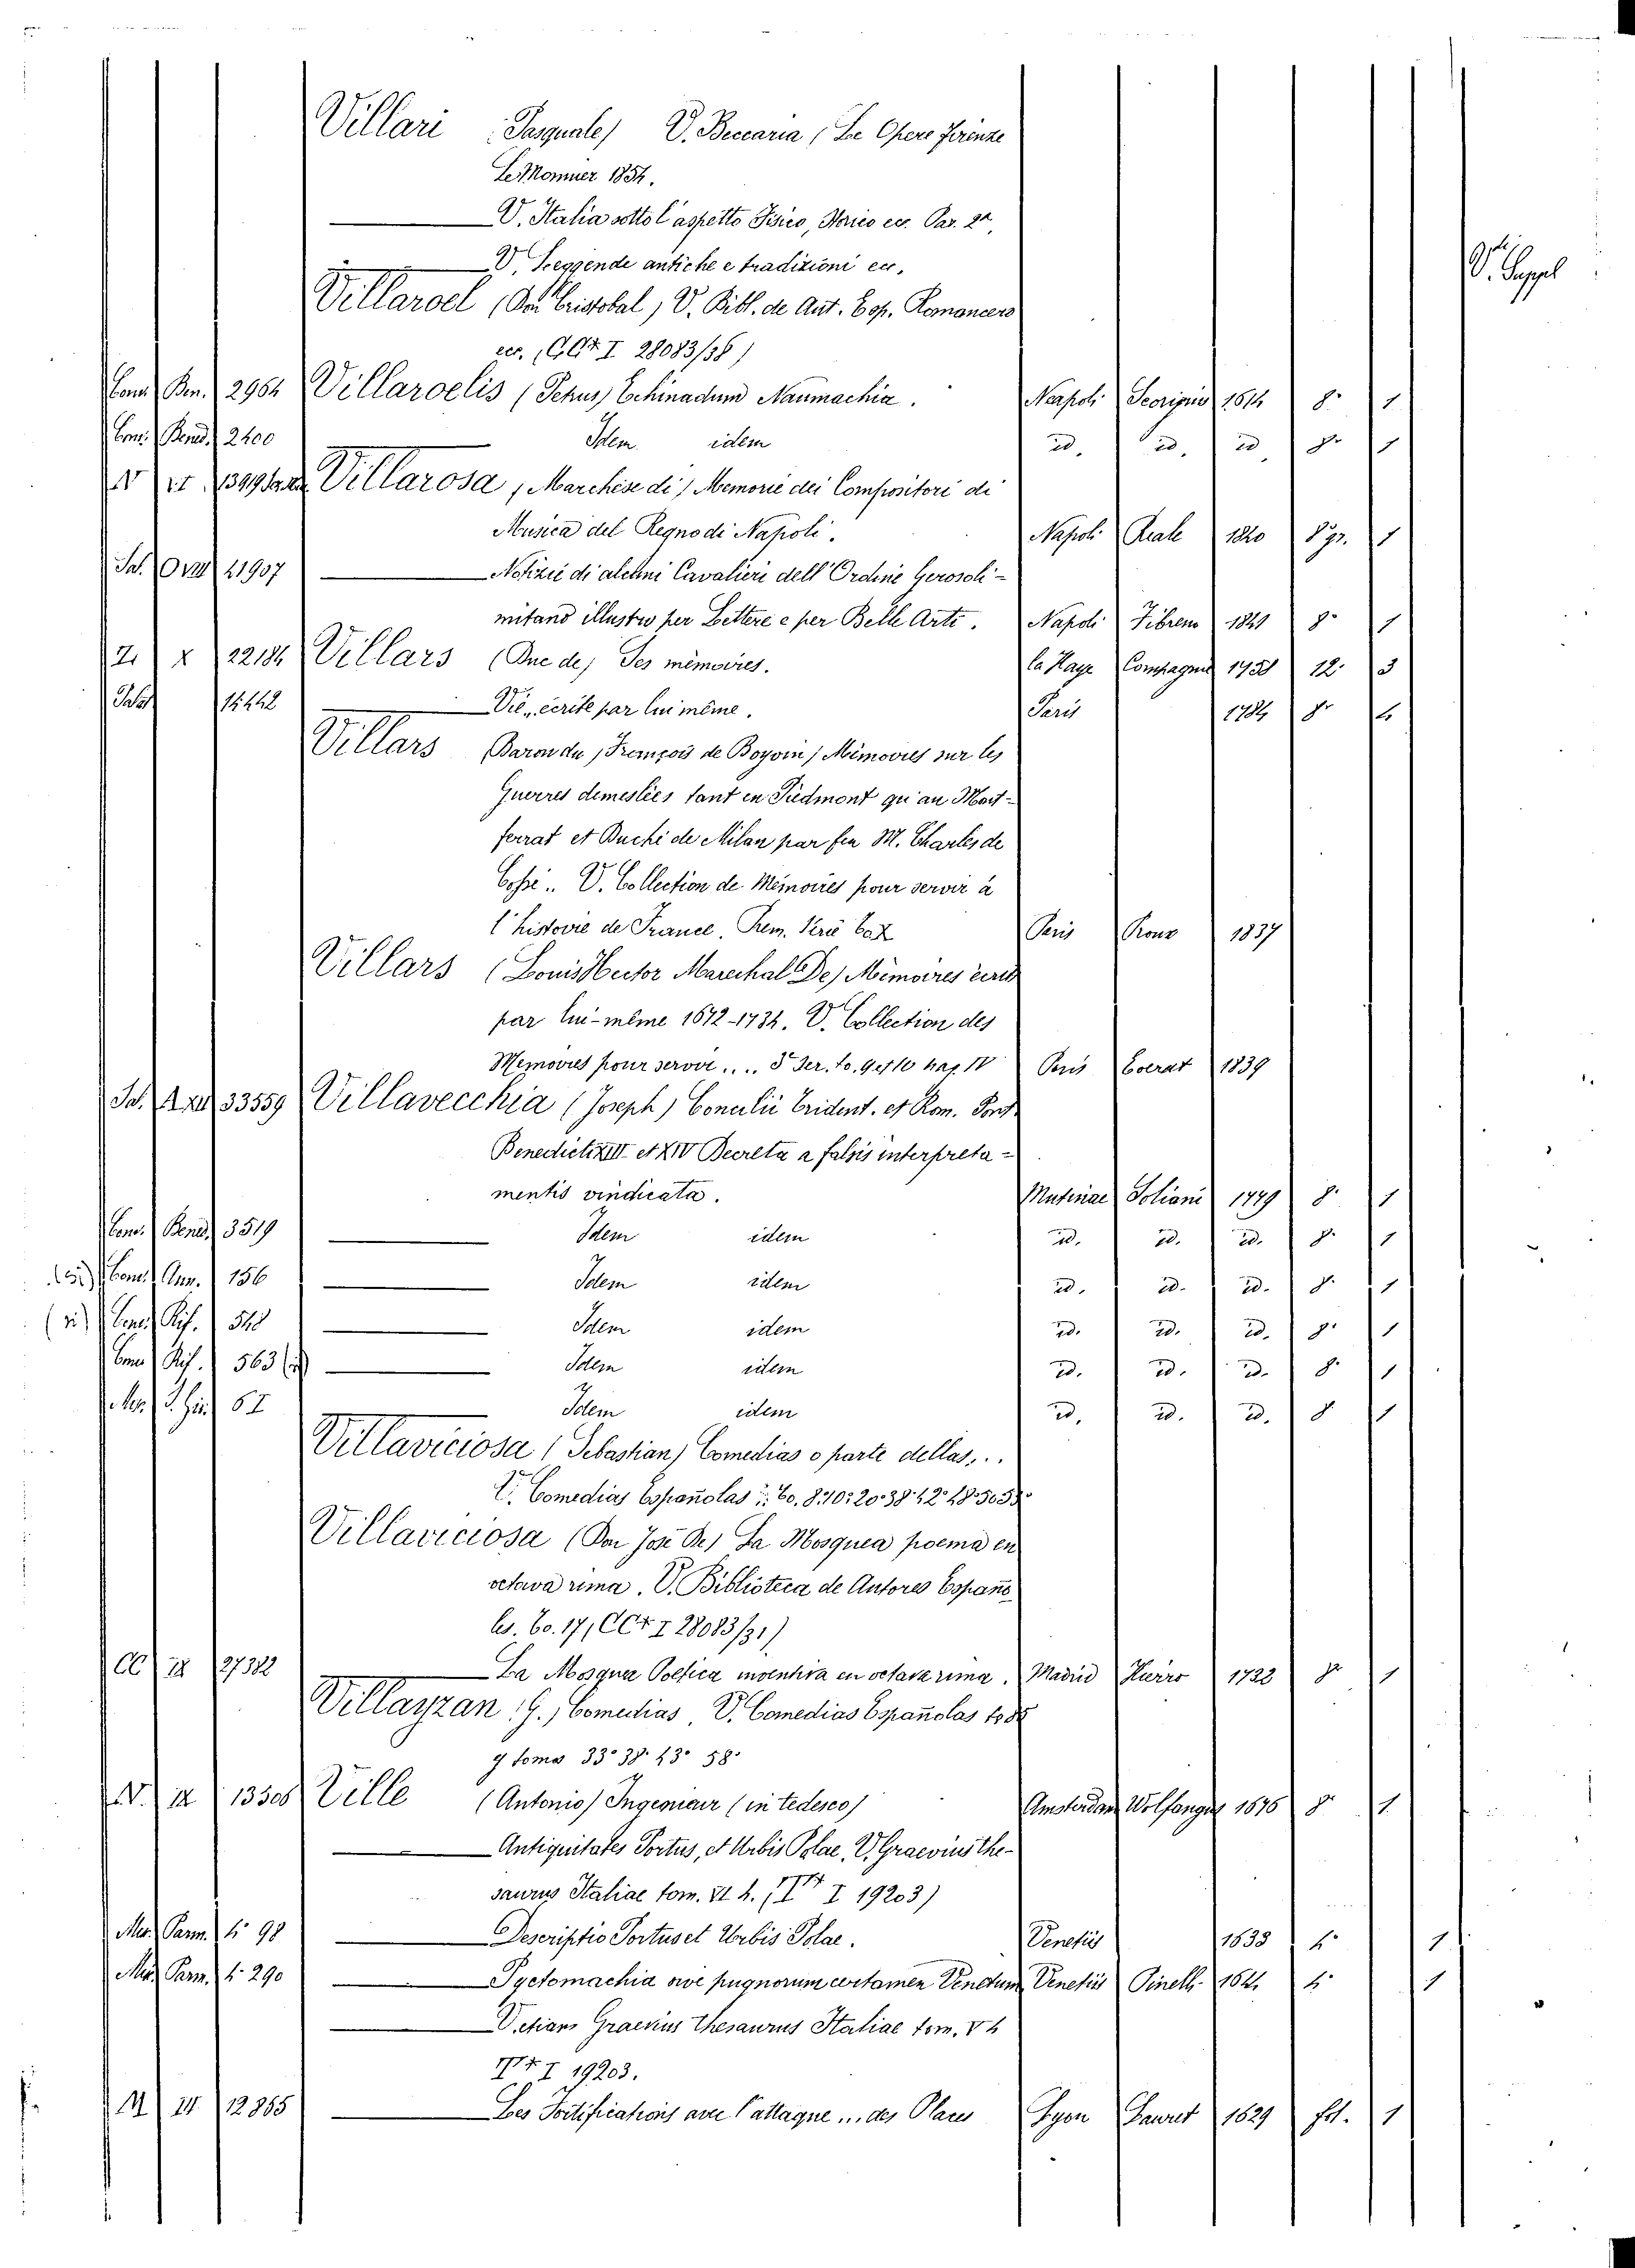 Villari (Pasquale) V. Beccaria (Le Opere Firenze
Le Monnier 1854.
V. Italia sotto l'aspetto Fisico, Storico ecc. Par. 2ª,
V. Leggende antiche e tradizioni ecc,
V. Suppl
Villaroel (Don Cristobal) V. Bibl. de Aut. Esp. Romancero
ecc. (CC I 28083/36)
Conv. Ben. 2964 Villaroelis (Petrus) Echinadum Naumachia. Neapoli Scoriginis 1614 8° 1
Conv. Bened. 2400 Idem idem id. id. id 8° 1
Villarosa (Marchese di) Memorie dei Compositori di
Musica del Regno di Napoli. Napoli Reale 1840 8° gr. 1
Sal. 21907 Notizie di alcuni Cavalieri dell' Ordine Gerosoli-
mitano illustri per Lettere e per Belle Arti. Napoli Fibreno 1841 8° 1
Z. x 22184 Villars (Duc de) Ses mémoires. la Haye Compagnie 12° 3
15442 Vie, écrite par lui même. Paris 1784 8° 4
Villars Baron du (François de Boyvin) Mémoires sur les
Guerres demeslées tant en Piedmont qu'au Mont-
ferrat et Duché de Milan par feu M. Charles de
Cossé.. V. Collection de Mémoires pour servir à
l'histoire de France. Prem. Série Paris 1837
Villars (Louis Hector Marechal De) Mémoires écrits
par lui-même 1672-1734. V. Collection des
Memoires pour servir.... 3e Ser. to. 9 et 10 Paris Everat 1839
Sal. 33559 Villavecchia (Joseph) Concilii Trident. et Rom. Pont
Benedicti XIII et XIV Decreta a falsis interpreta-
mentis vindicata. Mutinae Soliani 1749 8° 1
Conv. Bened. 3519 Idem idem id. id. id. 8° 1
Conv. Ann. 156 Idem idem id. id. id. 8° 1
Conv. Rif. 548 Idem idem id. id. id. 8° 1
Conv. Rif. 563 Idem idem id. id. id. 8° 1
Idem idem id. id. id. 8 1
Villaviciosa (Sebastian) Comedias o parte dellas...
V. Comedias Españolas
Villaviciosa (Don José De) La Mosquea poema en
octava rima. V. Biblioteca de Autores Españo
les. To. 17, (CC I 28083/31)
CC 27382 La Mosquea Poetica inventiva en octava rima. Madrid 1732 8° 1
Villayzan (G.) Comedias, V. Comedias Españolas
y tomo 33° 38° 43° 58°
V. 13508 Ville (Antonio) Ingenieur (in tedesco) Amsterdam Wolfangus 1676 8° 1
Antiquitates Portus, et Urbis Polae, V. Graevius the-
saurus Italiae tom. VI 4. ( I 19203)
Mss. Parm. 4° 98 Descriptio Portus et Urbis Polae. Venetiis 1633 4° 1
Mss. Parm. 4° 290 Pyctomachia sive pugnorum certamen Venetum Venetiis Pinelli 4° 1
Graevius Thesaurus Italiae tom. V 4
I 19203.
12865 Les Fortifications avec l'attaque... des Places Lyon 1629 fol. 1